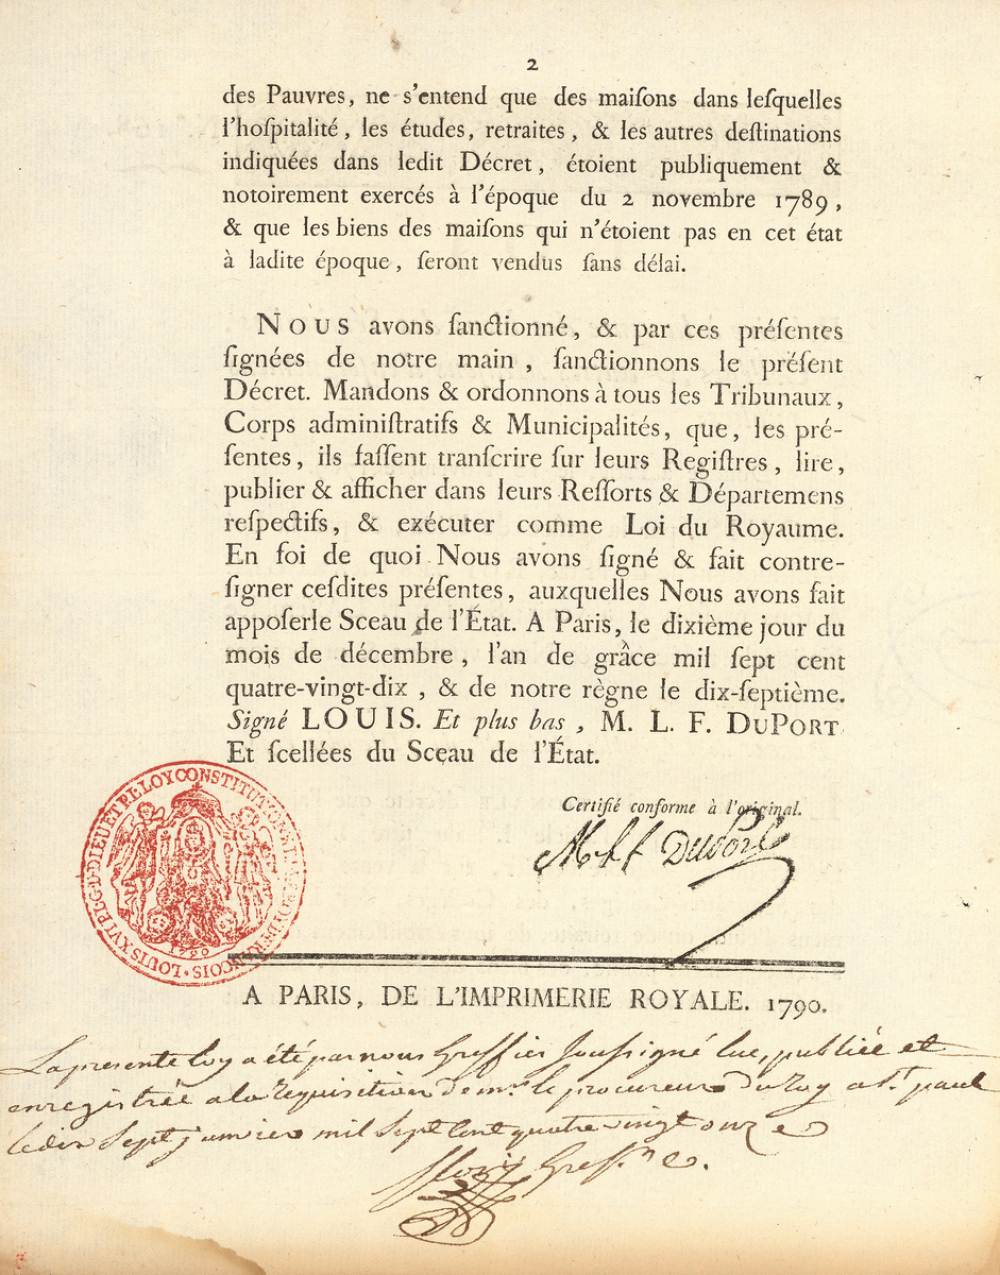 2
des Pauvres, ne s'entend que des maiſons dans leſquelles
l'hoſpitalité, les études, retraites, & les autres deſtinations
indiquées dans ledit Décret, étoient publiquement &
notoirement exercés à l'époque du 2 novembre 1789,
& que les biens des maiſons qui n'étoient pas en cet état
à ladite époque, ſeront vendus ſans délai.
NOUS avons ſanctionné, & par ces préſentes
ſignées de notre main, ſanctionnons le préſent
Décret. Mandons & ordonnons à tous les Tribunaux,
Corps adminiſtratifs & Municipalités, que, les pré-
ſentes, ils faſſent tranſcrire ſur leurs Regiſtres, lire,
publier & afficher dans leurs Reſſorts & Départemens
reſpectifs, & exécuter comme Loi du Royaume.
En foi de quoi Nous avons ſigné & fait contre-
ſigner ceſdites préſentes, auxquelles Nous avons fait
appoſerle Sceau de l'État. A Paris, le dixième jour du
mois de décembre, l'an de grâce mil ſept cent
quatre-vingt-dix, & de notre règne le dix-ſeptième.
Signé LOUIS. Et plus bas, M. L. F. DUPORT
Et ſcellées du Sceau de l'État.
Certifié conforme à l'original.
M L F DuPort
LOUIS XVI P.L.G.D.DIEU ET P.E.LOY CONSTITUT. ROI DE FRANCOIS
1790
A PARIS, DE L'IMPRIMERIE ROYALE. 1790.
La presente loy a été par nous Greffier soussigné lue, publiée et
enregistrée a la requisition de mr. le procureur du Roy a St. paul
le dix sept janvier mil sept cent quatre vingt onze
Greff.